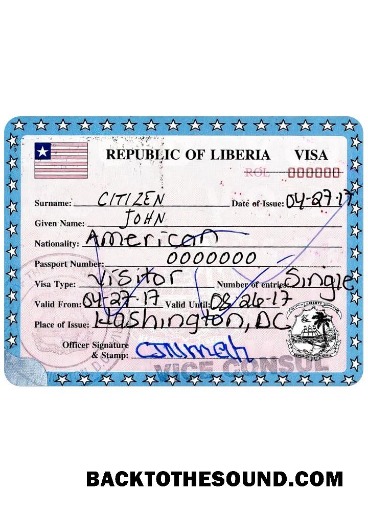 REPUBLIC OF LIBERIA VISA
ROL 000000
Surname: CITIZEN Date of Issue: 04-27-17
Given Name: JOHN
Nationality: American
Passport Number: 0000000
Visa Type: Visitor Number of entries: Single
Valid From: 04-27-17 Valid Until: 08-26-17
Place of Issue: Washington, DC
Officer Signature
& Stamp: CJTumah
VICE CONSUL
BACKTOTHESOUND.COM